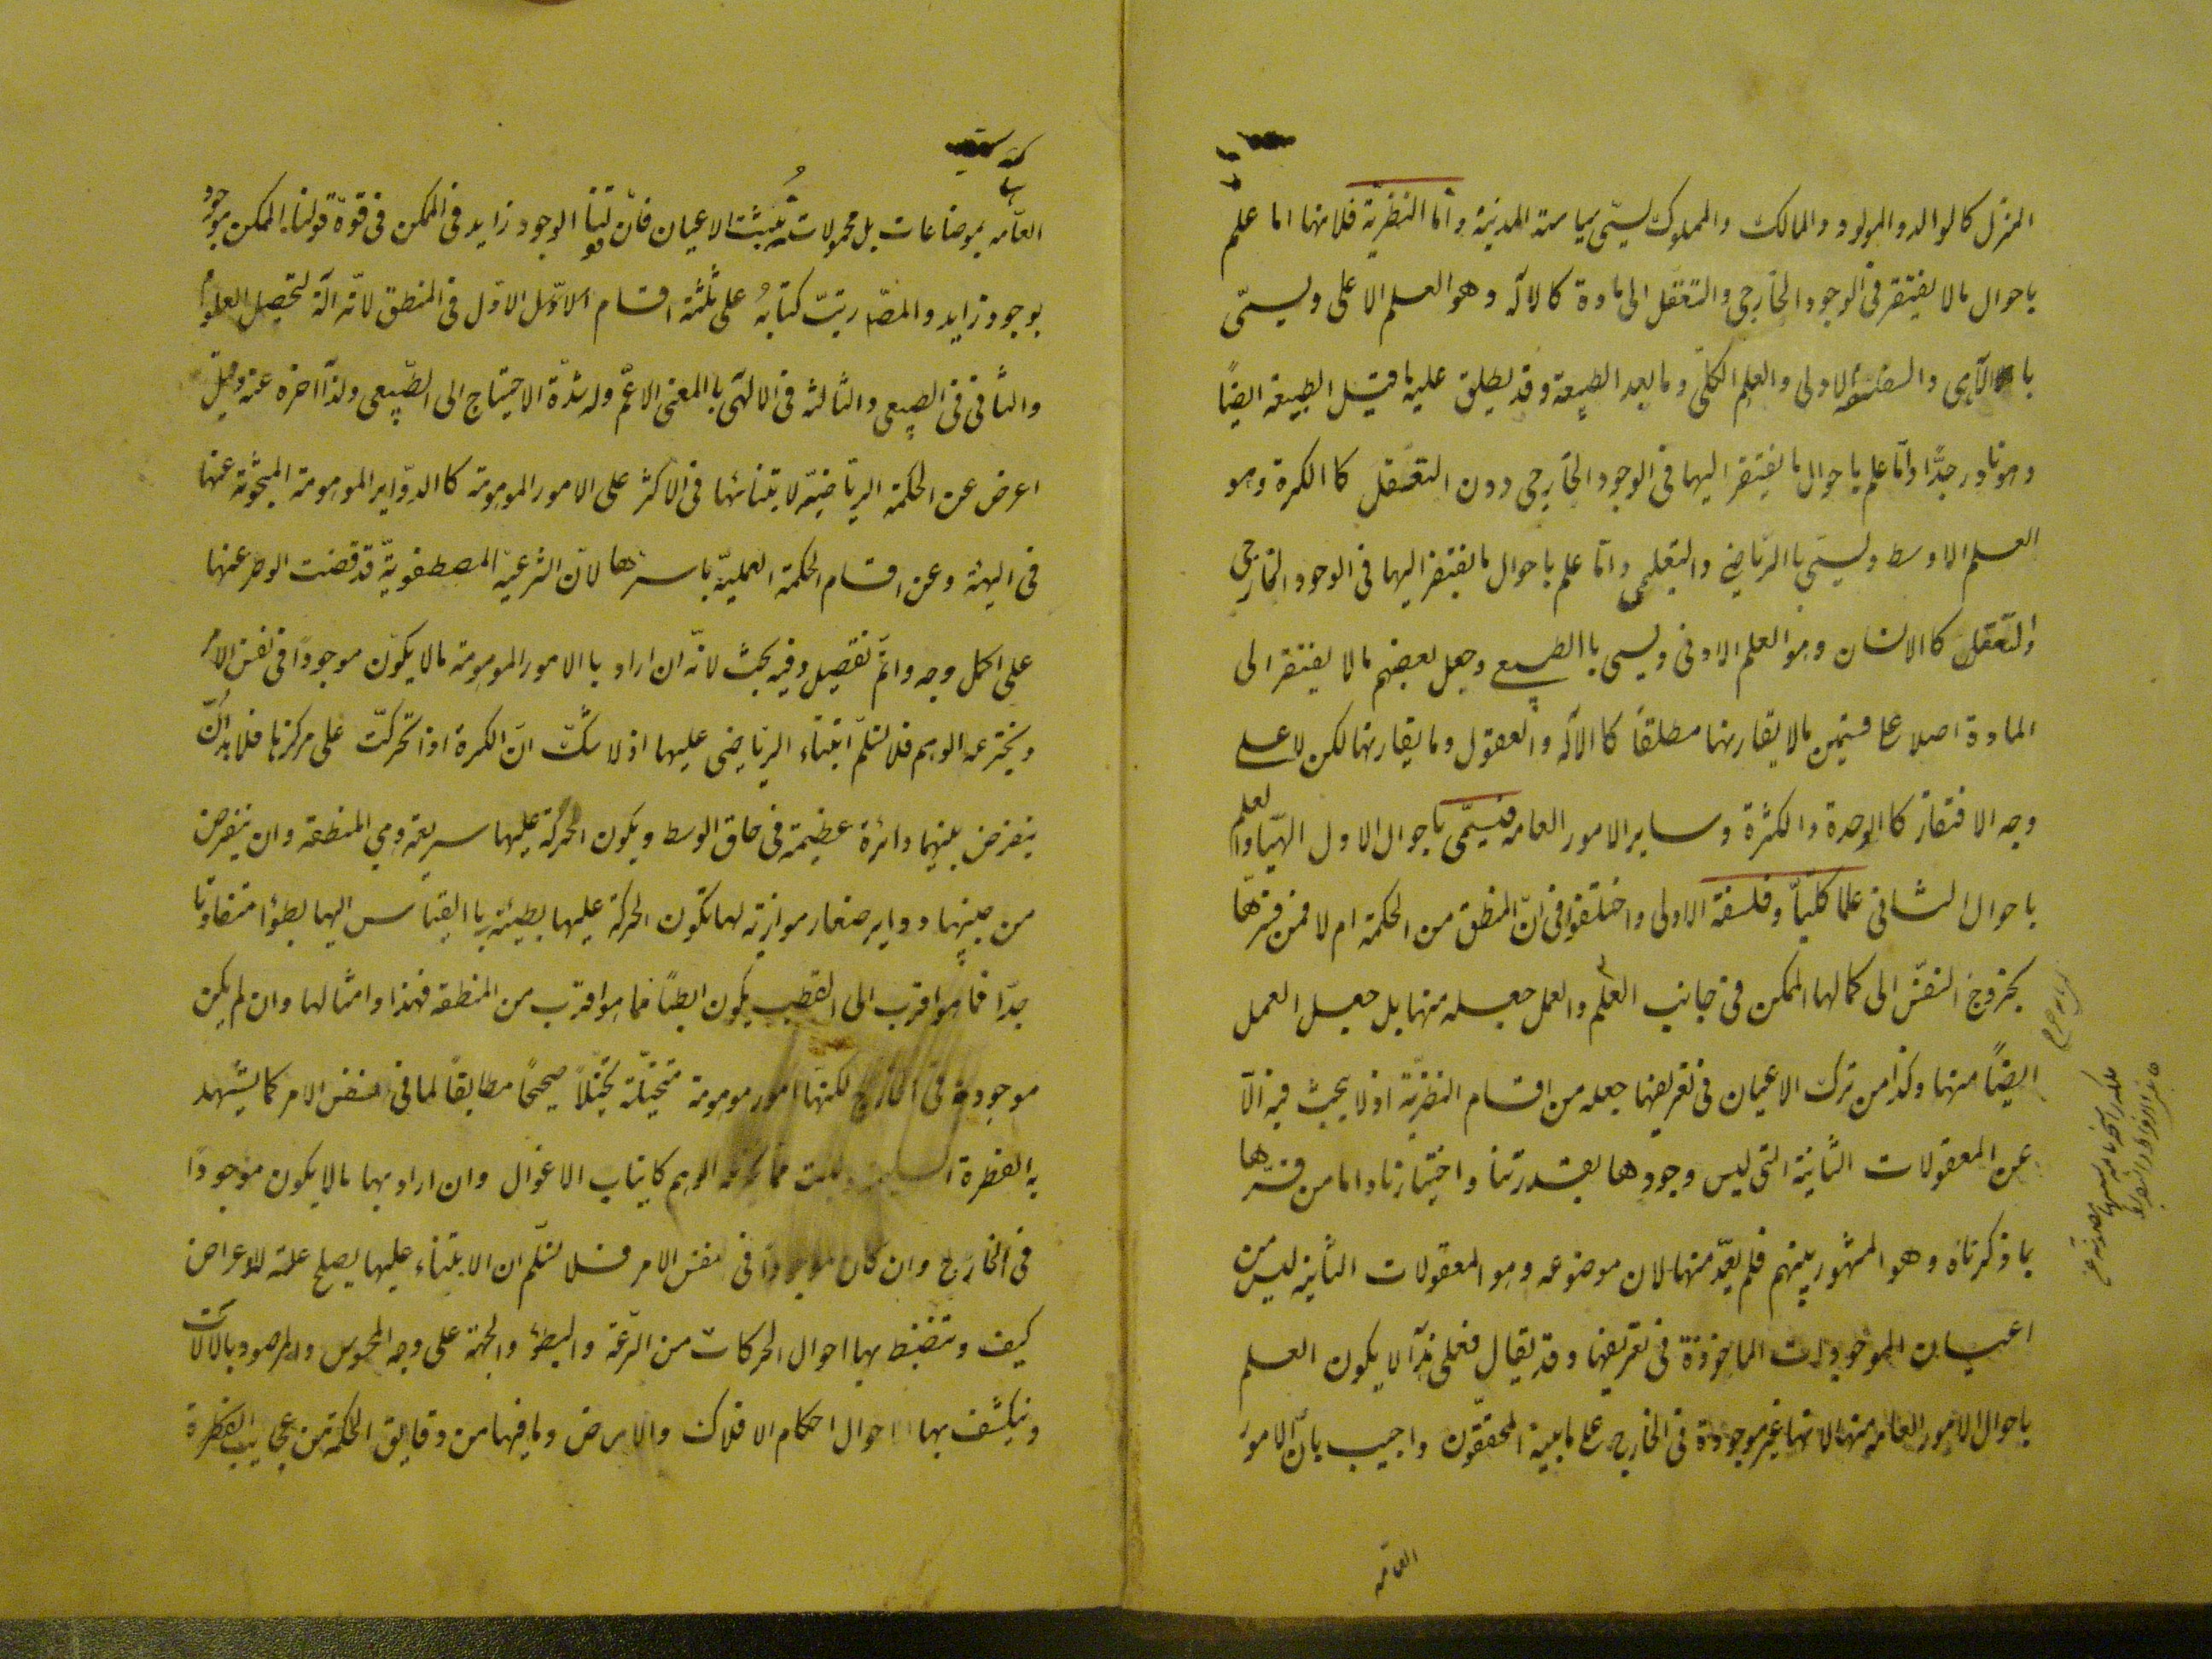 المنزل كالوالد والمولود والمالك والمملوك يسمّى سياسة المدنية وأمّا النظرية فلانها اما علم
باحوال مالا يفتقر فى الوجود الخارجى والتعقّل الى مادة كالاله وهو العلم الاعلى ويسمّى
بالالهى والفلسفة الاولى والعلم الكلّى وما بعد الطبيعة وقد يطلق عليه ما قبل الطبيعة ايضًا
وهو نادر جدًّا وامّا علم باحوال ما يفتقر اليها فى الوجود الخارجى دون التعقّل كالكرة وهو
العلم الاوسط ويسمّى بالرّياضى والتعليمى وامّا علم باحوال ما يفتقر اليها فى الوجود الخارجى
والتّعقل كالانسان وهو العلم الادنى ويسمى باالطبيعى وجعل بعضهم مالا يفتقر الى
المادة اصلا على قسمين مالا يقارنها مطلقًا كالاله والعقول وما يقارنها لكن لا على
وجه الافتقار كالوحدة والكثرة وساير الامور العامه فيسمّى باحوال الاول الهيّا والعلم
باحوال الثانى علمًا كليّاً وفلسفة الاولى واختلفوا فى انّ المنطق من الحكمة ام لا فمن فسّرها
بخروج النفس الى كمالها الممكن فى جانب العلم والعمل جعله منها بل جعل العمل
ايضًا منها وكذا من ترك الاعيان فى تعريفها جعله من اقسام النظريّة اذ لا يبحث فيه الّا
عن المعقولات الثّانية التى ليس وجودها بقدرتنا واختيارنا واما من فسّرها
بما ذكرناه وهو المشهور بينهم فلم يعدّ منها لان موضوعه وهو المعقولات الثّانية ليس من
اعيان الموجودات الماخوذة فى تعريفها وقد يقال فعلى هذا لا يكون العلم
باحوال الامور العامه منها لانها غير موجودة فى الخارج على ما بينه المحققون واجيب بانّ الامور
العامّه
العامّه بموضاعات بل محمولات يثبت الاعيان فانّ قولنا الوجود زايد فى الممكن فى قوّة قولنا الممكن موجود
بوجود زايد والمصّ رتّب كتابهُ على ثلثة اقسام الاوّل الاول فى المنطق لانّه الة لتحصيل العلوم
والثّانى فى الطبيعى والثّالثه فى الالهى باالمعنى الاعمّ وله شدّة الاحتياج الى الطّبيعى ولذا اخره عنه وقيل
اعرض عن الحكمة الرياضيّة لابتنائها فى الاكثر على الامور الموهومة كالدواير الموهومة المبحوثة عنها
فى الهيئة وعن اقسام الحكمة العمليّة باسرها لانّ الشرعيّة المصطفويّة قد قضت الوطر عنها
على اكمل وجه واتمّ تفصيل وفيه بحث لانّه ان اراد باالامور الموهومة مالا يكون موجودًا فى نفس الامر
ويخترعه الوهم فلا نسلّم ابتناء الرياضى عليها اذ لا شكّ انّ الكرة اذا تحرّكت على مركزها فلا بدّ انّ
ينفرض بينهما دائرة عظيمة فى حاق الوسط ويكون الحركة عليها سريعة وهى المنطقة وان ينفرض
من جنبيها دواير صغار موازية لها تكون الحركة عليها بطيئة باالقياس اليها بطؤا متفاوتا
جدّا فما هو اقرب الى القطب يكون ابطأ مما هو اقرب من المنطقه فهذا وامثالها وان لم يكن
موجودة فى الخارج لكنها امور موهومة متخيّلة تخيّلًا صحيحًا مطابقًا لما فى نفس الامر كما يشهد
به الفطرة السليمة وليست مما يخترعه الوهم كانياب الاغوال وان اراد بها مالا يكون موجودًا
فى الخارج وان كان موجودًا فى نفس الامر فلا نسلّم ان الابتناء عليها يصلح علة للاعراض
كيف وتنضبط بها احوال الحركات من السّرعة والبطؤ والجهة على وجه المحسوس والمرصود بالالات
وينكشف بها احوال احكام الافلاك والارض وما فيها من دقايق الحكمة من عجايب الفطرة